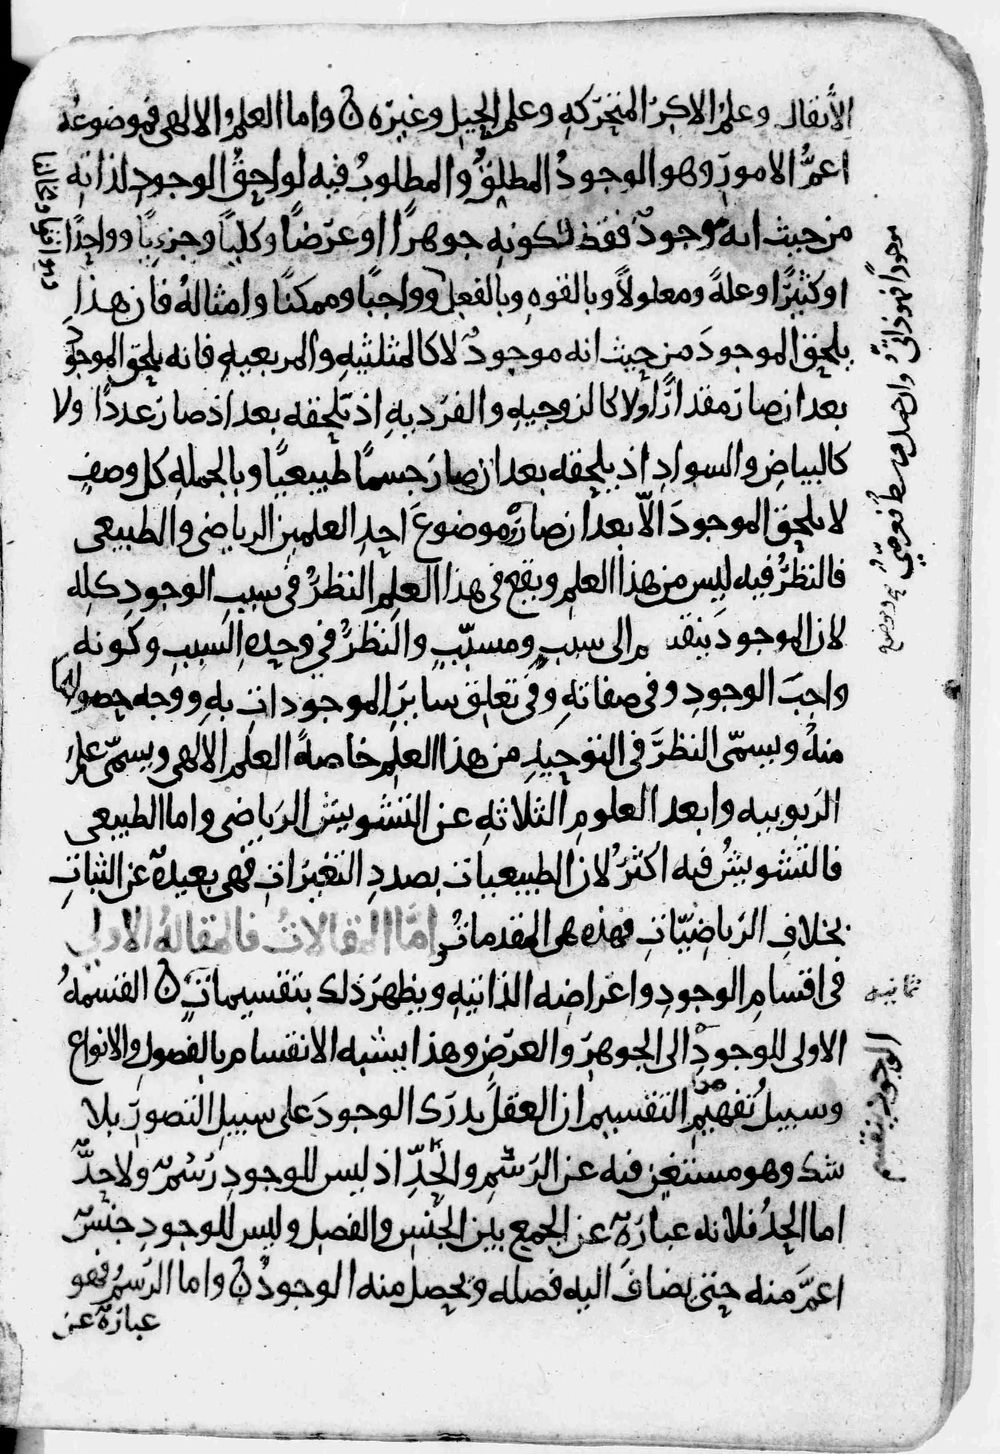 الأثقال وعلم الاكر المتحركه وعلم الحيل وغيره ن واما العلم الالهى فموضوعه
اعمُّ الامور وهو الوجودُ المطلقُ والمطلوبُ فيه لواحِقُ الوجودِ لذاته
من حيث انه وجودٌ فقط ككونه جوهرًا او عرَضًا وكليًا وجزءيًا وواحِدًا
او كثيرًا وعلةً ومعلولاً وبالقوهِ وبالفعل وواجبًا وممكنًا وامثالهُ فان هذا
يلحق الموجودَ من حيث انه موجودٌ لا كالمثلثيهِ والمربعيهِ فانه يلحق الموجود
بعد ان صار مقدارًا ولا كالزوجيهِ والفرديهِ اذ تلحقه بعد اذ صار عددًا ولا
كالبياضِ والسوادِ اذ يلحقه بعد ان صار جسمًا طبيعيًا وبالجملهِ كل وصفٍ
لا يلحق الموجودَ الاّ بعد ان صار موضوعَ احدِ العلمين الرياضى والطبيعى
فالنظرُ فيه ليس من هذا العلمِ ويقع فى هذا العلمِ النظرُ فى سببِ الوجودِ كله
لان الموجودَ ينقسم الى سببٍ ومسبّبٍ والنظرُ فى وحدهِ السببِ وكونه
واجبَ الوجودِ وفى صفاتهِ وفى تعلقِ سايرِ الموجوداتِ بهِ ووجه حصولها
منهُ ويسمّى النظرَ فى التوحيدِ من هذا العلمِ خاصةً العلمَ الالهى ويسمّى علم
الربوبيه وابعد العلومِ الثلاثهِ عن التشويش الرياضى واما الطبيعى
فالتشويشُ فيه اكثرُ لان الطبيعيات بصددِ التغيراتِ فهى بعيدةٌ عن الثباتِ
بخلافِ الرياضيّاتِ فهذه هى المقدماتُ واما المقالاتُ فالمقالهُ الاولى
فى اقسامِ الوجودِ واعراضه الذاتيهِ ويظهر ذلك بتقسيماتٍ ن القسمهُ
الاولى للوجودِ الى الجوهرِ والعرضِ وهذا يشبه الانقسام بالفصولِ والانواع
وسبيلُ تفهيمِ التقسيم ان العقلَ يدرَك الوجودَ على سبيلِ التصورِ بلا
شك وهو مستغنٍ فيه عن الرسمِ والحدِّ اذ ليس للوجودِ رسْمٌ ولا حدٌّ
اما الحدُّ فلانه عبارةٌ عن الجمع بين الجنسِ والفصل وليس للوجودِ جنسٌ
اعمَّ منه حتى يضافَ اليه فصله ويحصل منه الوجودُ ن واما الرسمُ فهو
عبارةٌ عن
الوجود ينقسم